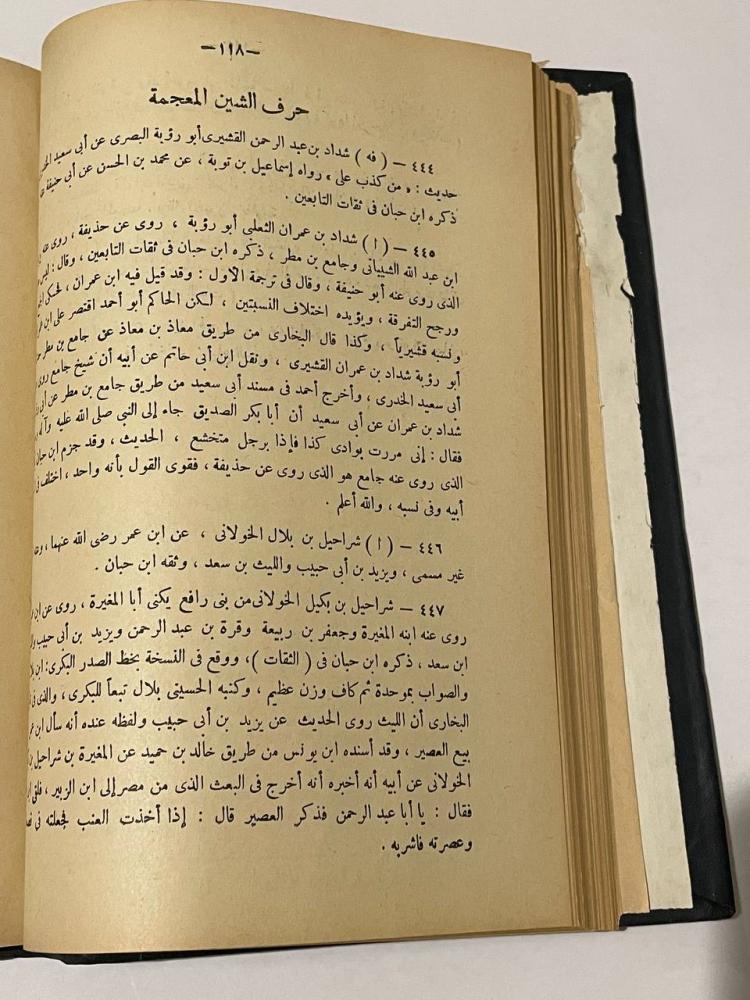 —١١٨—
حرف الشين المعجمة
٤٤٤ — ( فه ) شداد بن عبد الرحمن القشيرى أبو رؤبة البصرى عن أبى سعيد
حديث : « من كذب على » رواه إسماعيل بن توبة ، عن محمد بن الحسن عن أبى حنيفة
ذكره ابن حبان فى ثقات التابعين .
٤٤٥ — ( ا ) شداد بن عمران الثعلبى أبو رؤبة ، روى عن حذيفة ، روى عنه
ابن عبد الله الشيبانى وجامع بن مطر ، ذكره ابن حبان فى ثقات التابعين ، وقال : ليس
الذى روى عنه أبو حنيفة ، وقال فى ترجمة الأول : وقد قيل فيه ابن عمران ،
ورجح التفرقة ، ويؤيده اختلاف النسبتين ، لكن الحاكم أبو أحمد اقتصر على ابن
ونسبه قشيرياً ، وكذا قال البخارى من طريق معاذ بن معاذ عن جامع بن مطر
أبو رؤبة شداد بن عمران القشيرى ، ونقل ابن أبى حاتم عن أبيه أن شيخ جامع روى
أبى سعيد الخدرى ، وأخرج أحمد فى مسند أبى سعيد من طريق جامع بن مطر عن
شداد بن عمران عن أبى سعيد أن أبا بكر الصديق جاء إلى النبى صلى الله عليه وآله
فقال : إنى مررت بوادى كذا فإذا برجل متخشع ، الحديث ، وقد جزم ابن
الذى روى عنه جامع هو الذى روى عن حذيفة ، فقوى القول بأنه واحد ، اختلف فى
أبيه وفى نسبه ، والله أعلم .
٤٤٦ — ( ا ) شراحيل بن بلال الخولانى ، عن ابن عمر رضى الله عنهما ،
غير مسمى ، ويزيد بن أبى حبيب والليث بن سعد ، وثقه ابن حبان .
٤٤٧ — شراحيل بن بكيل الخولانى من بنى رافع يكنى أبا المغيرة ، روى عن
روى عنه ابنه المغيرة وجعفر بن ربيعة وقرة بن عبد الرحمن ويزيد بن أبى حبيب
ابن سعد ، ذكره ابن حبان فى ( الثقات ) ، ووقع فى النسخة بخط الصدر البكرى : ابن
والصواب بموحدة ثم كاف وزن عظيم ، وكتبه الحسينى بلال تبعاً للبكرى ، والذى
البخارى أن الليث روى الحديث عن يزيد بن أبى حبيب ولفظه عنده أنه سأل ابن
بيع العصير ، وقد أسنده ابن يونس من طريق خالد بن حميد عن المغيرة بن شراحيل
الخولانى عن أبيه أنه أخبره أنه أخرج فى البعث الذى من مصر إلى ابن الزبير ،
فقال : يا أبا عبد الرحمن فذكر العصير قال : إذا أخذت العنب فجعلته فى
وعصرته فاشربه .